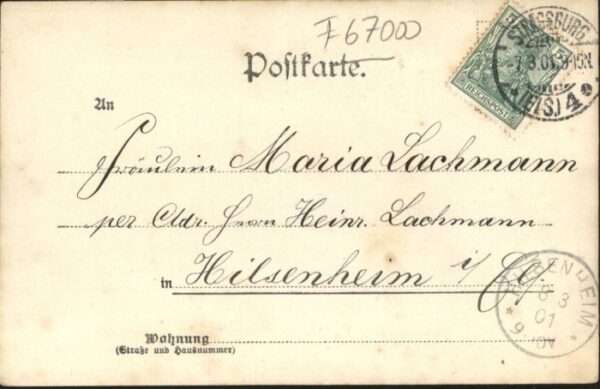 F 67000
STRASSBURG
7.3.01.9-10N.
(ELS.) 4e
REICHSPOST
Postkarte.
An
Fräulein Maria Lachmann
per Adr. Herrn Heinr. Lachmann
in Hilsenheim i/
HILSENHEIM
8 3
01
Wohnung
(Straße und Hausnummer)